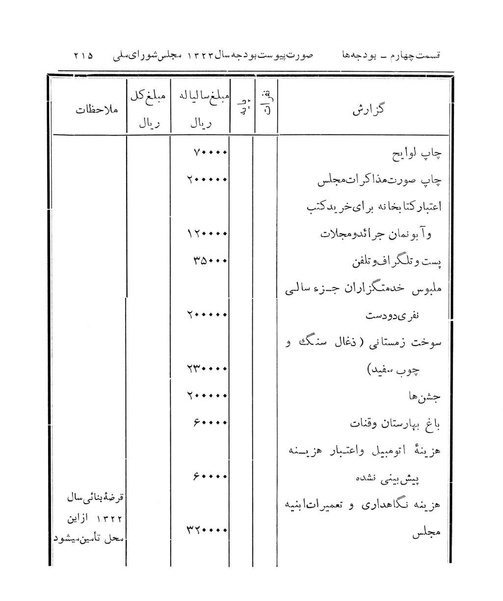 قسمت چهارم ــ بودجه‌ها صورت پیوست بودجه سال ۱۳۲۳ مجلس شورای ملی ۲۱۵
گزارش نفرات پایه مبلغ سالیانه ریال مبلغ کل ریال ملاحظات
چاپ لوایح ۷۰۰۰۰
چاپ صورت مذاکرات مجلس ۲۰۰۰۰۰
اعتبار کتابخانه برای خرید کتب
و آبونمان جرائد و مجلات ۱۲۰۰۰۰
پست و تلگراف و تلفن ۳۵۰۰۰
ملبوس خدمتگزاران جزء سالی
نفری دو دست ۲۰۰۰۰۰
سوخت زمستانی (ذغال سنگ و
چوب سفید) ۲۳۰۰۰۰
جشن‌ها ۲۰۰۰۰۰
باغ بهارستان و قنات ۶۰۰۰۰
هزینهٔ اتومبیل و اعتبار هزینه
پیش‌بینی نشده ۶۰۰۰۰
هزینه نگاهداری و تعمیرات ابنیه
مجلس ۳۲۰۰۰۰
قرضهٔ بنائی سال
۱۳۲۲ از این
محل تأمین میشود